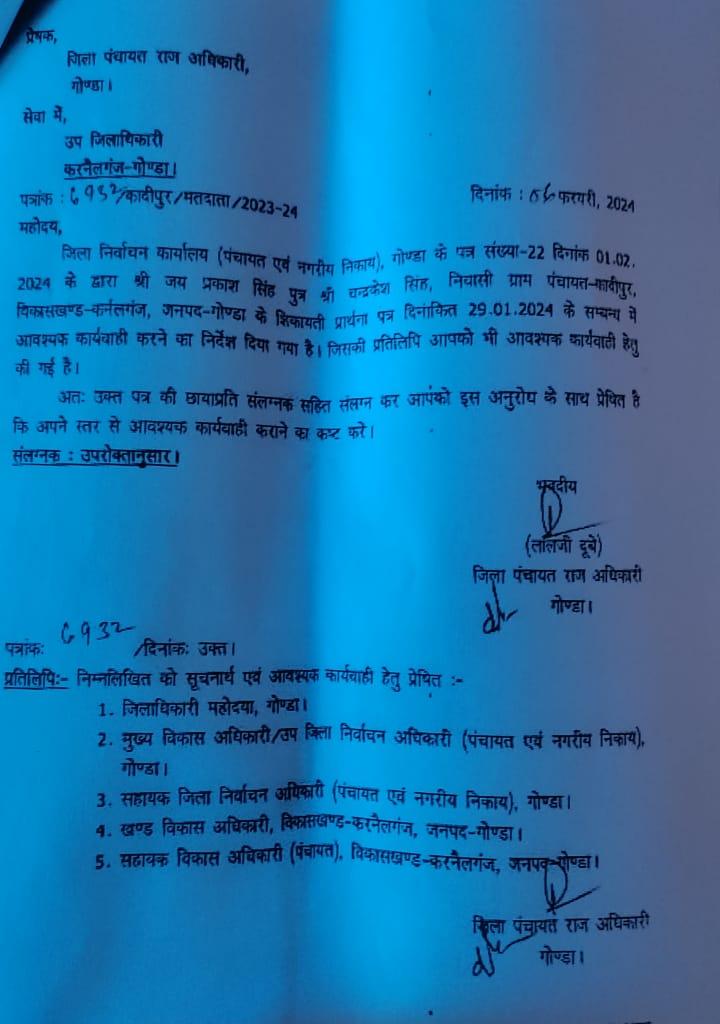 प्रेषक,
जिला पंचायत राज अधिकारी,
गोण्डा।
सेवा में,
उप जिलाधिकारी
करनैलगंज-गोण्डा।
पत्रांक : 6932/कादीपुर/मतदाता/2023-24 दिनांक : फरवरी, 2024
महोदय,
जिला निर्वाचन कार्यालय (पंचायत एवं नगरीय निकाय), गोण्डा के पत्र संख्या-22 दिनांक 01.02.
2024 के द्वारा श्री जय प्रकाश सिंह पुत्र श्री चन्द्रकेश सिंह, निवासी ग्राम पंचायत-कादीपुर,
विकासखण्ड-कर्नलगंज, जनपद-गोण्डा के शिकायती प्रार्थना पत्र दिनांकित 29.01.2024 के सम्बन्ध में
आवश्यक कार्यवाही करने का निर्देश दिया गया है। जिसकी प्रतिलिपि आपको भी आवश्यक कार्यवाही हेतु
की गई है।
अतः उक्त पत्र की छायाप्रति संलग्नक सहित संलग्न कर आपको इस अनुरोध के साथ प्रेषित है
कि अपने स्तर से आवश्यक कार्यवाही कराने का कष्ट करे।
संलग्नक : उपरोक्तानुसार।
भवदीय
(लालजी दूबे)
जिला पंचायत राज अधिकारी
गोण्डा।
पत्रांकः 6932 /दिनांकः उक्त।
प्रतिलिपिः- निम्नलिखित को सूचनार्थ एवं आवश्यक कार्यवाही हेतु प्रेषित :-
1. जिलाधिकारी महोदया, गोण्डा।
2. मुख्य विकास अधिकारी/उप जिला निर्वाचन अधिकारी (पंचायत एवं नगरीय निकाय),
गोण्डा।
3. सहायक जिला निर्वाचन अधिकारी (पंचायत एवं नगरीय निकाय), गोण्डा।
4. खण्ड विकास अधिकारी, विकासखण्ड-करनैलगंज, जनपद-गोण्डा।
5. सहायक विकास अधिकारी (पंचायत), विकासखण्ड-करनैलगंज, जनपद-गोण्डा।
जिला पंचायत राज अधिकारी
गोण्डा।